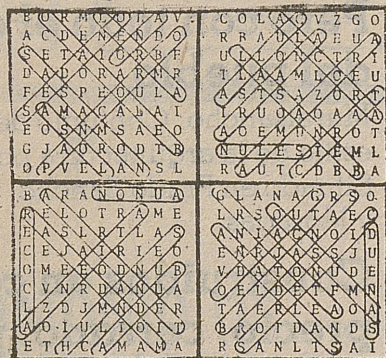 BORMLOLAV
ACDENENDO
SETAIORBF
DADORARMR
FESPEOULA
SAMACALAI
EOSNMSAEO
GJAORODTB
OPVELANSL
COLAOVZGO
RBAULAEUA
ULLONCTRI
TLAAMLOEU
ASTSAZORT
CRUOAOAAA
AOEMUNROT
NULESIEML
RAUTCDBBA
BARANONUA
RELOTRAME
EASLRTLAS
CEJAIRIEO
OMEEODNUB
CVNRDANUA
LZDJMNDER
AOIULIOIT
ETHCAMAMA
GLANAGRSO
LRSOUTAEC
ANIACNOID
ENRJASSJU
VDATONUDE
OELDETFMN
TAERLEAOA
BROTDANDS
RSANLTSAI